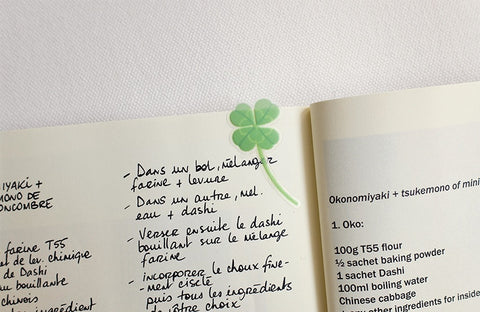 IYAKI +
MONO DE
ONCOMBRE
farine T55
et de lev. chimique
de Dashi
au bouillante
chinois
ingrédient
- Dans un bol, mélanger
farine + levure
- Dans un autre, mel.
eau + dashi
- Verser ensuite le dashi
bouillant sur le mélange
farine
- incorporer le choux fine-
- ment ciselé
puis tous les ingrédients
de votre choix
Okonomiyaki + tsukemono of mini
1. Oko:
100g T55 flour
½ sachet baking powder
1 sachet Dashi
100ml boiling water
Chinese cabbage
any other ingredients for inside